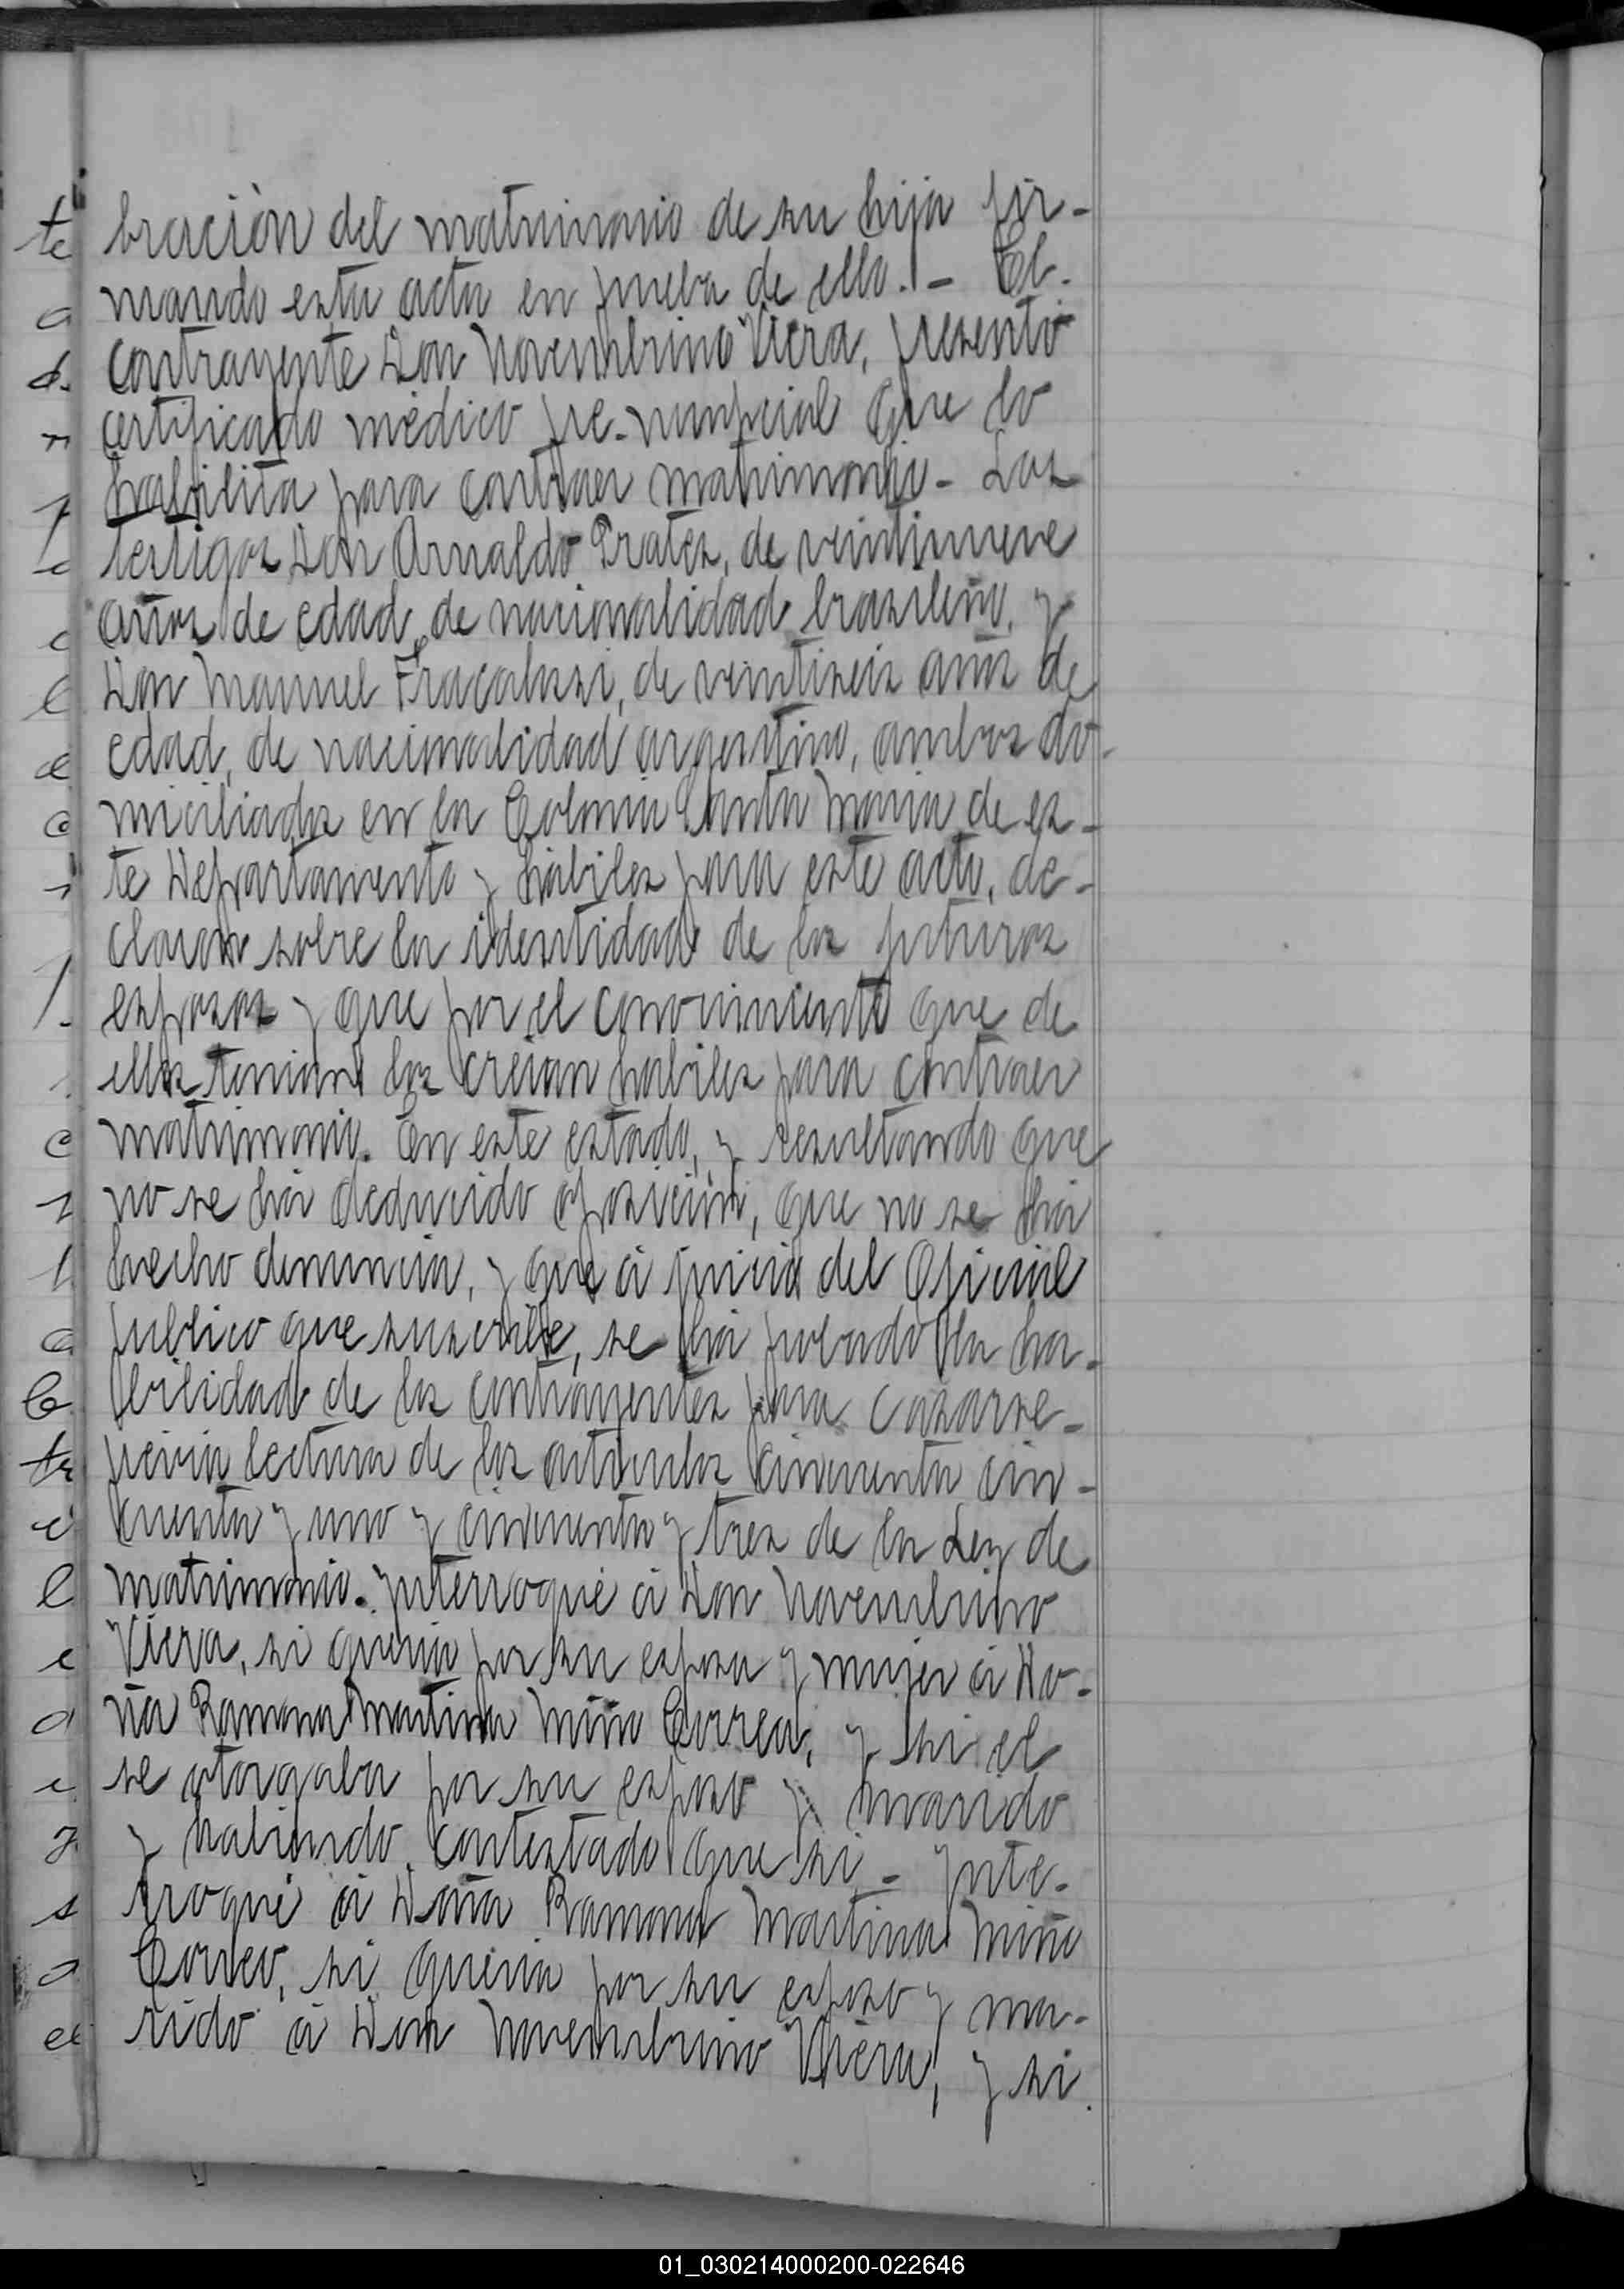 bración del matrimonio de su hija fir-
mando esta acta en prueba de ello.- El.
contrayente Don Novembrino Viera, presentó
certificado médico pre-nunpcial que lo
habilita para contraer matrimonio- Los
testigos Don Arnaldo Prates, de veintinueve
años de edad, de nacionalidad brasileño, y
Don Manuel Fracalossi, de veintiseis años de
edad, de nacionalidad argentino, ambos do-
miciliados en la Colonia Santa María de es-
te Departamento y hábiles para este acto, de-
claron sobre la identidad de los futuros
esposos y que por el conocimiento que de
ellos tenian los creian habiles para contraer
matrimonio. En este estado, y resultando que
no se há deducido oposición, que no se há
hecho denuncia, y que á juicio del Oficial
publico que suscribe, se há probado la ha-
bilidad de los contrayentes para casarse-
previa lectura de los articulos cincuenta cin-
cuenta y uno y cincuenta y tres de la Ley de
matrimonio. Ynterroqué á Don Novembrino
Viera, si queria por su esposa y mujer á Do-
ña Ramona Martina Miño Correa, y si el
se otorgaba por su esposo y marido
y habiendo contestado que si - Ynte-
rroqué á Doña Ramona Martina Miño
Correa, si queria por su esposo y ma-
rido á Don Novembrino Viera, y si
01_030214000200-022646